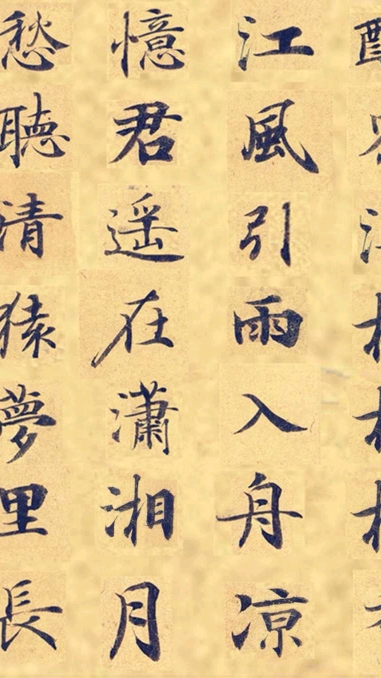 江風引雨入舟凉
憶君遥在瀟湘月
愁聽清猿夢里長